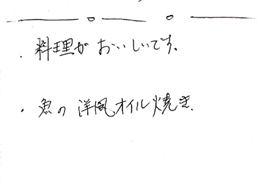 ・料理がおいしいです。
・魚の洋風オイル焼き